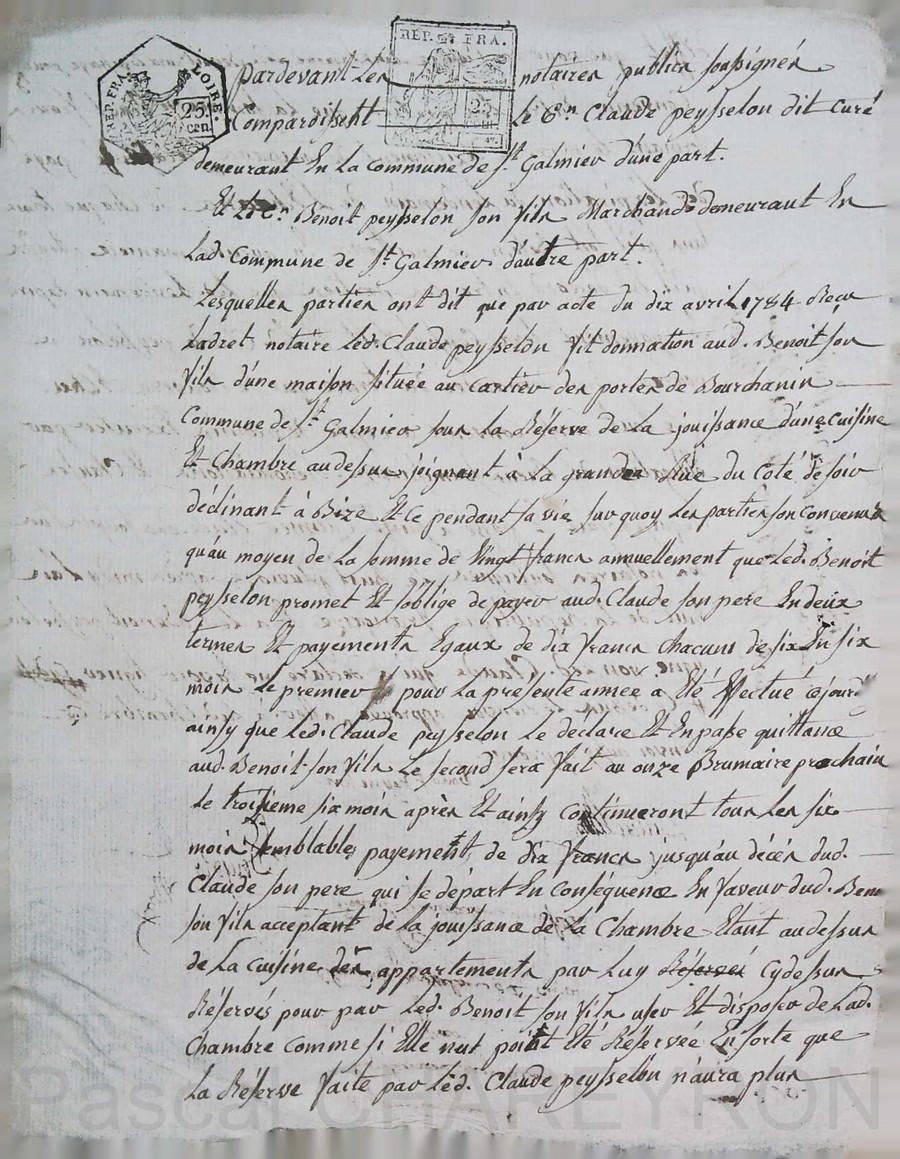 REP. FRA. LOIRE. 25. cen.
REP. FRA. 25
Pardevant Les notaires publics soussignés
Comparaissent le Cen. Claude peysselon dit curé
demeurant En La commune de St. Galmier d'une part.
Et le Cen. Benoit peysselon son fils Marchand demeurant En
Lad. Commune de St. Galmier d'autre part.
Lesquelles parties ont dit que par acte du dix avril 1784 Reçu
Ladret notaire Led. Claude peysselon fit donnation aud. Benoit son
fils d'une maison située au cartier des portes de Bourchanin
Commune de St. Galmier sous la Réserve de La jouissance d'une cuisine
Et Chambre audessus joignant à La grande Rue du Coté de soir
déclinant à Bize Et ce pendant sa vie sur quoy Les parties son convenues
qu'au moyen de La somme de Vingt francs annuellement que Led. Benoit
peysselon promet Et s'oblige de payer aud. Claude son pere En deux
termes Et payements Egaux de dix francs chacuns de six En six
mois Le premier pour La presente année a Eté Effectué cejourd
ainsy que Led. Claude peysselon Le déclare Et En passe quittance
aud. Benoit son fils Le second sera fait au onze Brumaire prochain
Le troisieme six mois après Et ainsy continueront tous Les six
mois semblables payements de dix francs jusqu'au décés dud.
Claude son pere qui se départ En conséquence En faveur dud. Beno
son fils acceptant de La jouissance de La Chambre Etant audessus
de La cuisine des appartements par Luy Réservé Cydessus
Réservés pour par Led. Benoit son fils user Et disposer de Lad.
Chambre comme si Elle n'eut point Eté Réservée En sorte que
La Réserve faite par Led. Claude peysselon n'aura plus
Pascal CHAREYRON